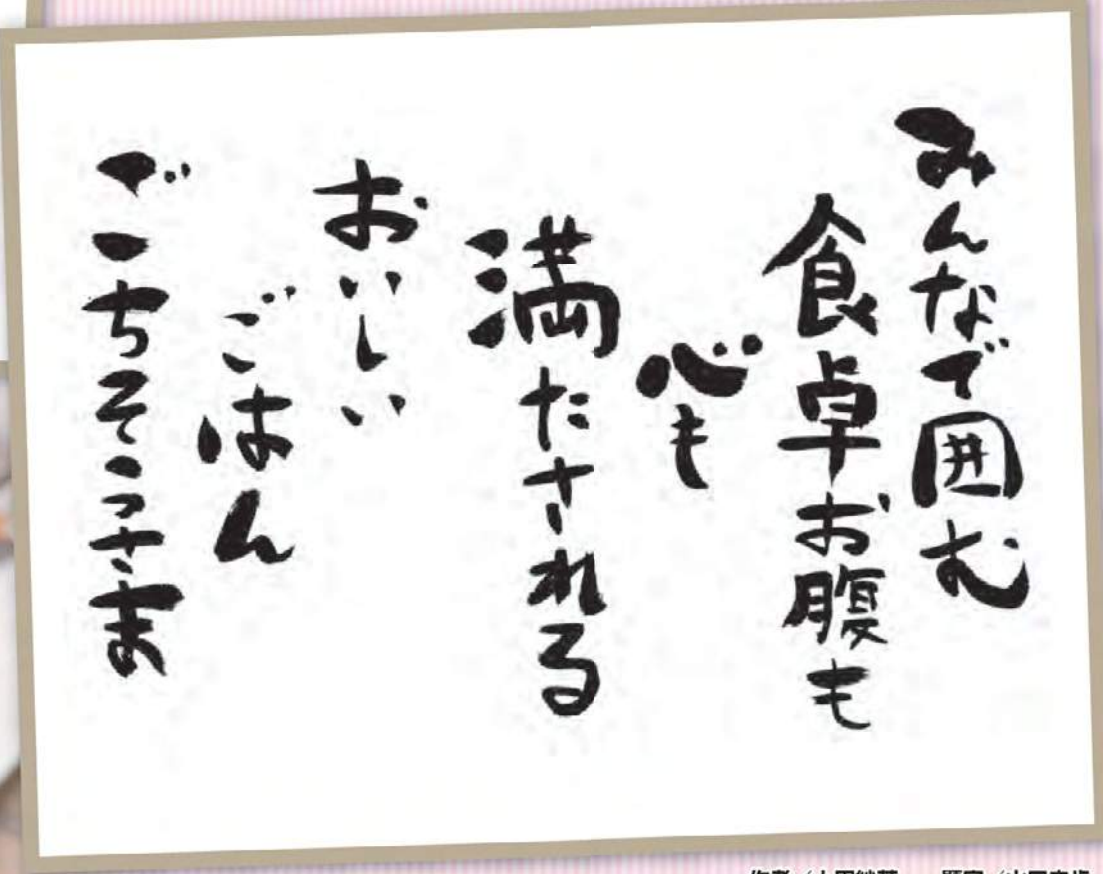 みんなで囲む
食卓お腹も
心も
満たされる
おいしい
ごはん
ごちそうさま